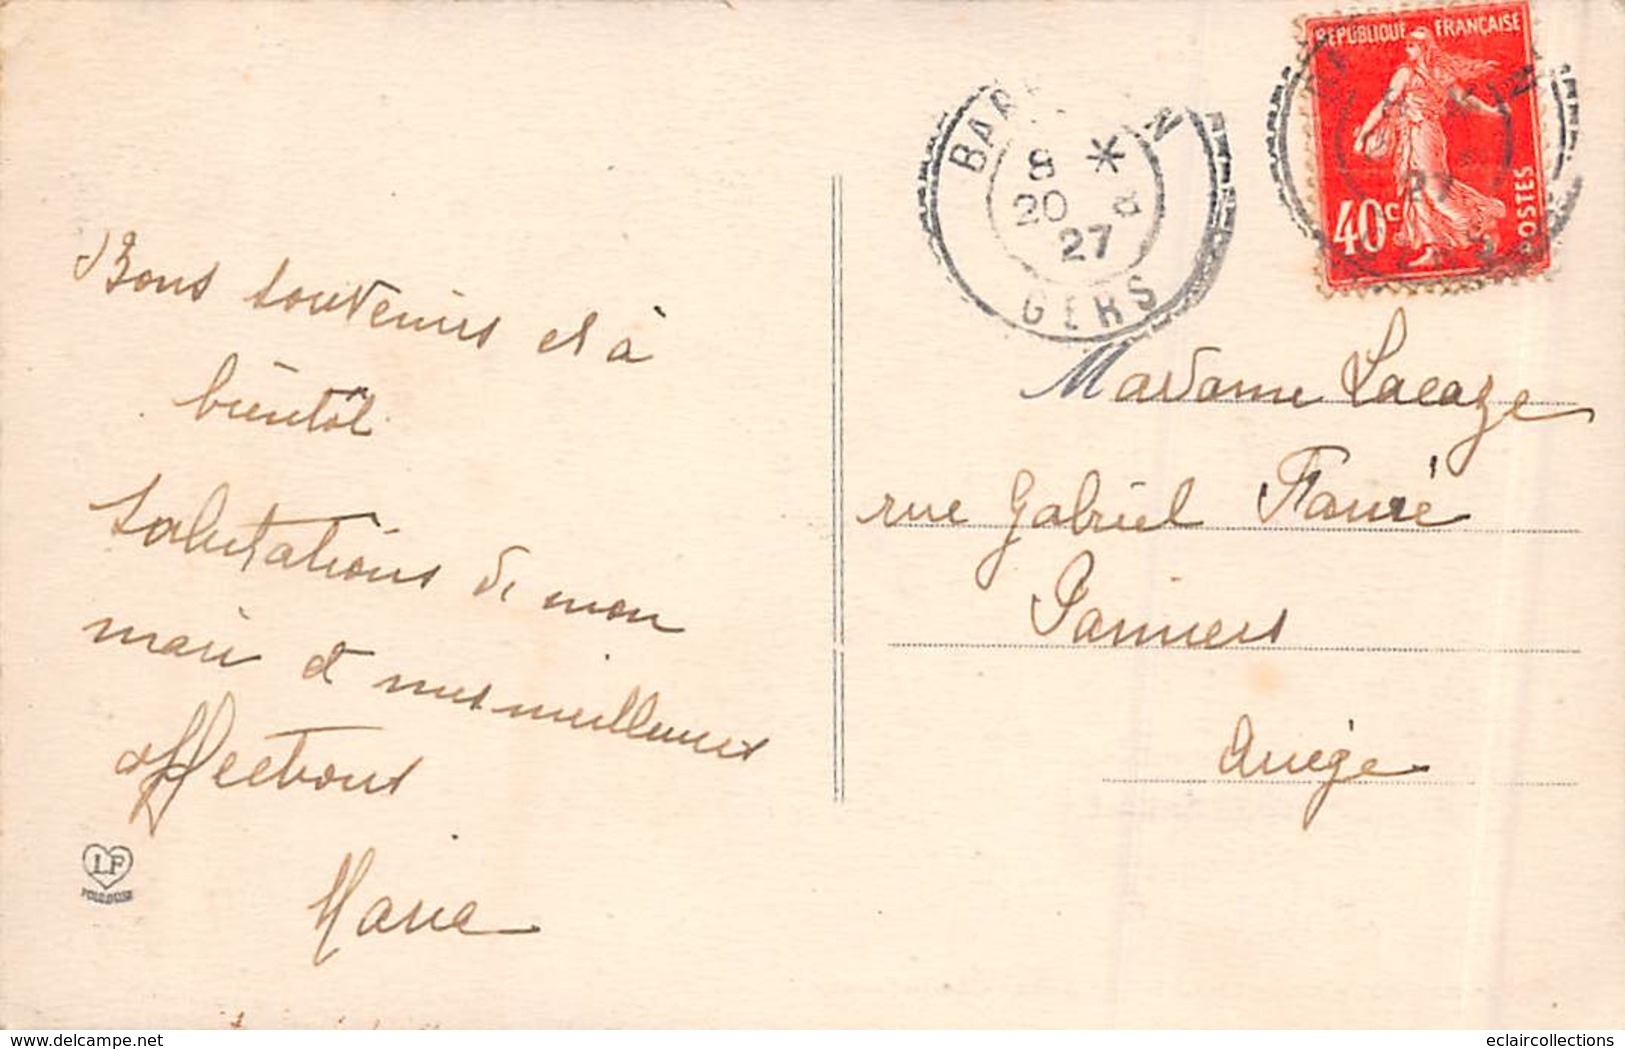 Bons souvenirs et à
bientôt
Salutations de mon
mari et mes meilleures
affections
Marie
LF
TOULOUSE
8 *
20 8
27
GERS
REPUBLIQUE FRANÇAISE
40c
POSTES
Madame Lacaze
rue Gabriel Fauré
Pamiers
Ariège
delcampe.net
eclaircollections